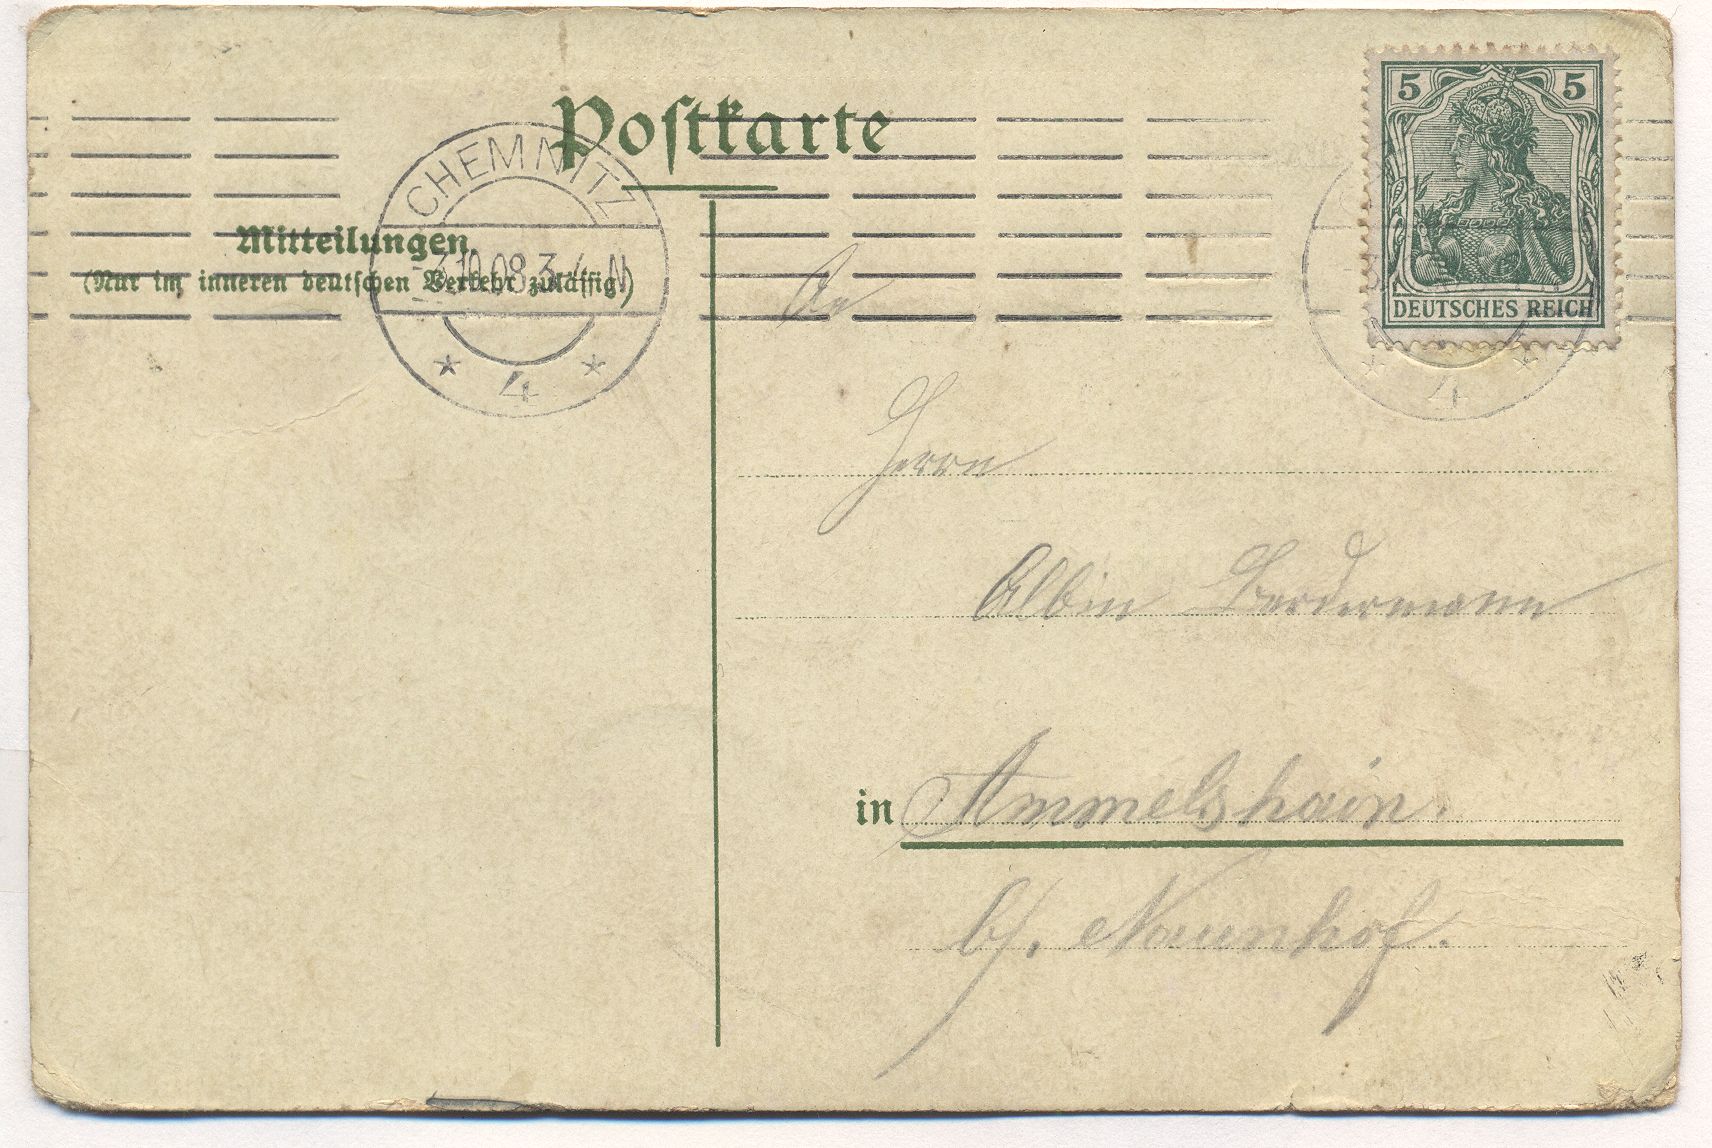 Postkarte
5 5
DEUTSCHES REICH
CHEMNITZ
-3.10.08.3-4N
* 4 *
4
Mitteilungen.
(Nur im inneren deutschen Verkehr zulässig)
An
Herrn
Albin
in Ammelshain.
b/. Naunhof.